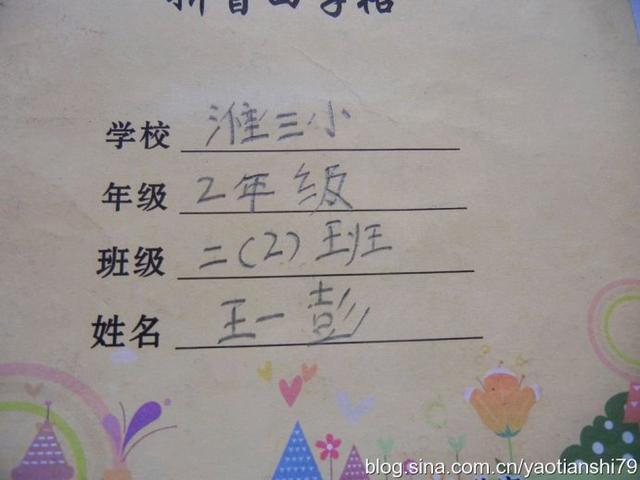 拼音田字格
学校 淮三小
年级 2年级
班级 二(2)班
姓名 王一彭
blog.sina.com.cn/yaotianshi79